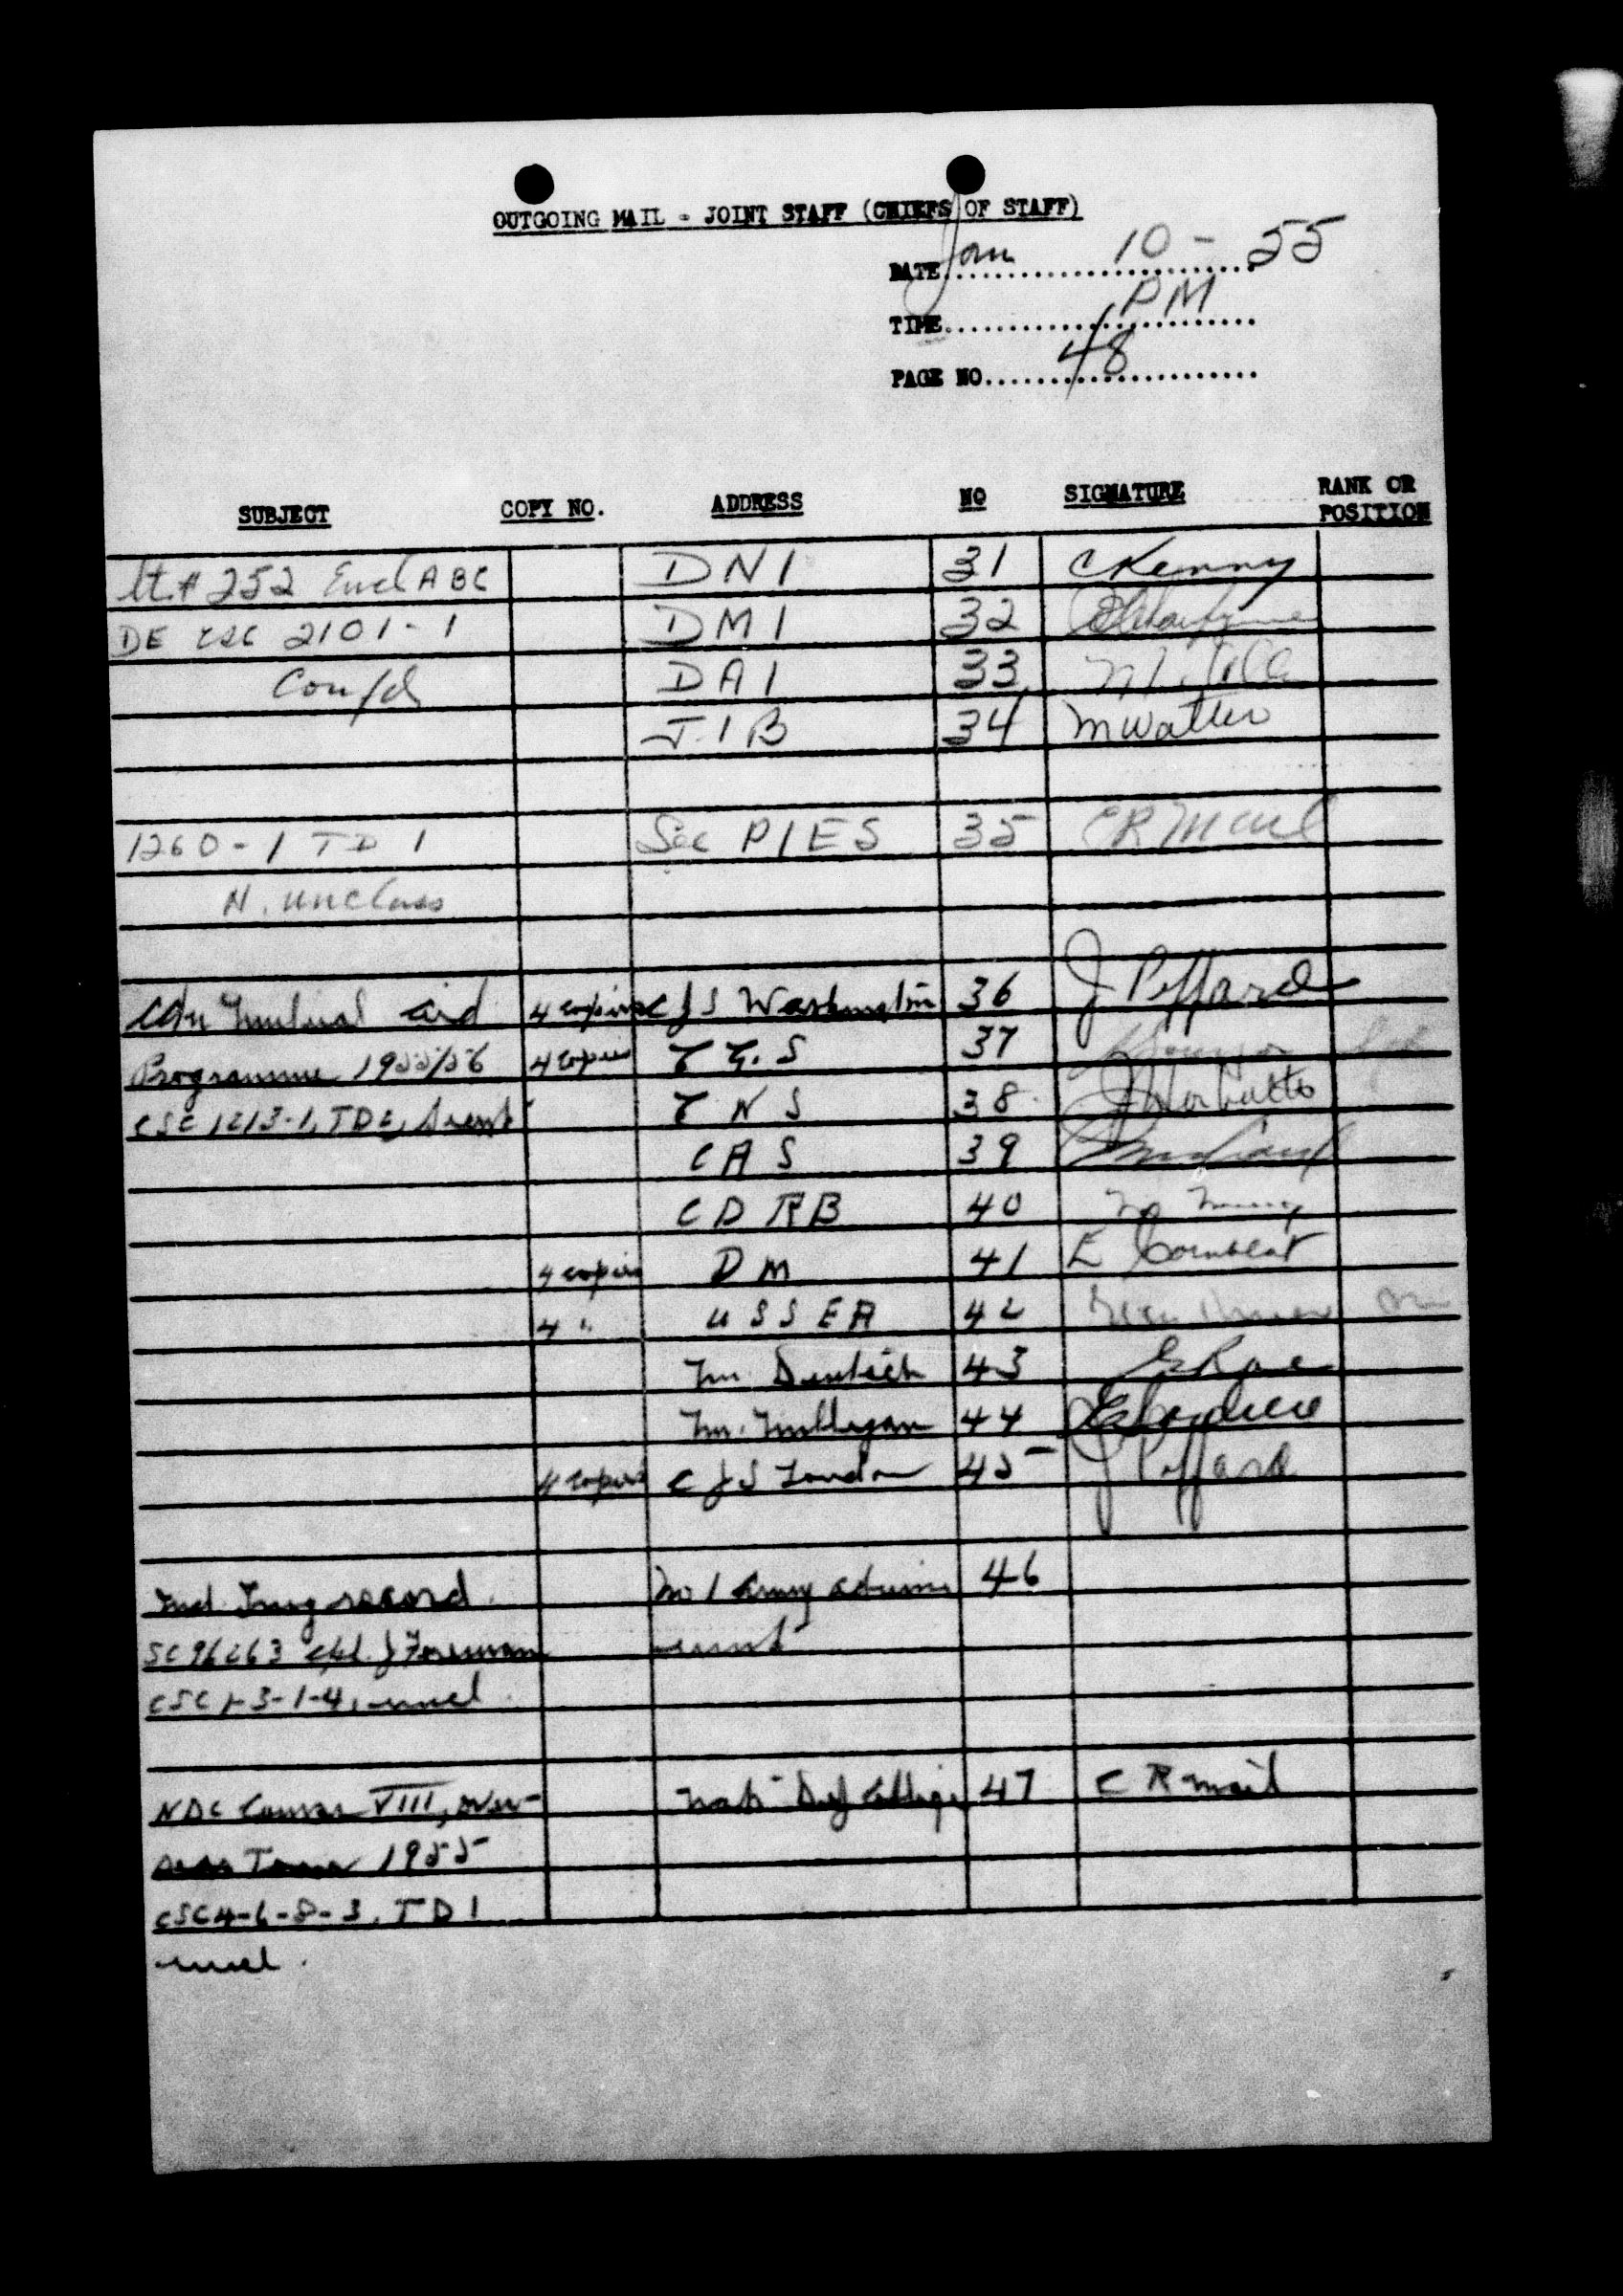 OUTGOING MAIL - JOINT STAFF (CHIEFS OF STAFF)
DATE Jan 10 - 55
TIME PM
PAGE NO. 48
SUBJECT COPY NO. ADDRESS NO SIGNATURE RANK OR POSITION
252 Encl ABC DNI 31 C Kenny
DE CSC 2101-1 DMI 32
Confd DAI 33
JIB 34 M Watters
1260-1 TD 1 Sec PIES 35 CR Mail
N. Unclass
Cdn Mutual Aid 4 copies CJS Washington 36 J Peffard
Programme 1955/56 4 copies C G S 37
CSC 1213-1, TD 2, Secret C N S 38
C A S 39
C D R B 40
4 copies D M 41 E
4 " U S S E A 42
Mr. Deutsch 43
Mr. Mulligan 44
4 copies C J S London 45 J Peffard
Ind. Trng record No 1 Army Admin 46
SC96263 J Foreman unit
CSC 1-3-1-4, uncl
NDC Course VIII, Over- Nat Def College 47 C R mail
seas Tour 1955
CSC 4-6-8-3, TD 1
uncl.